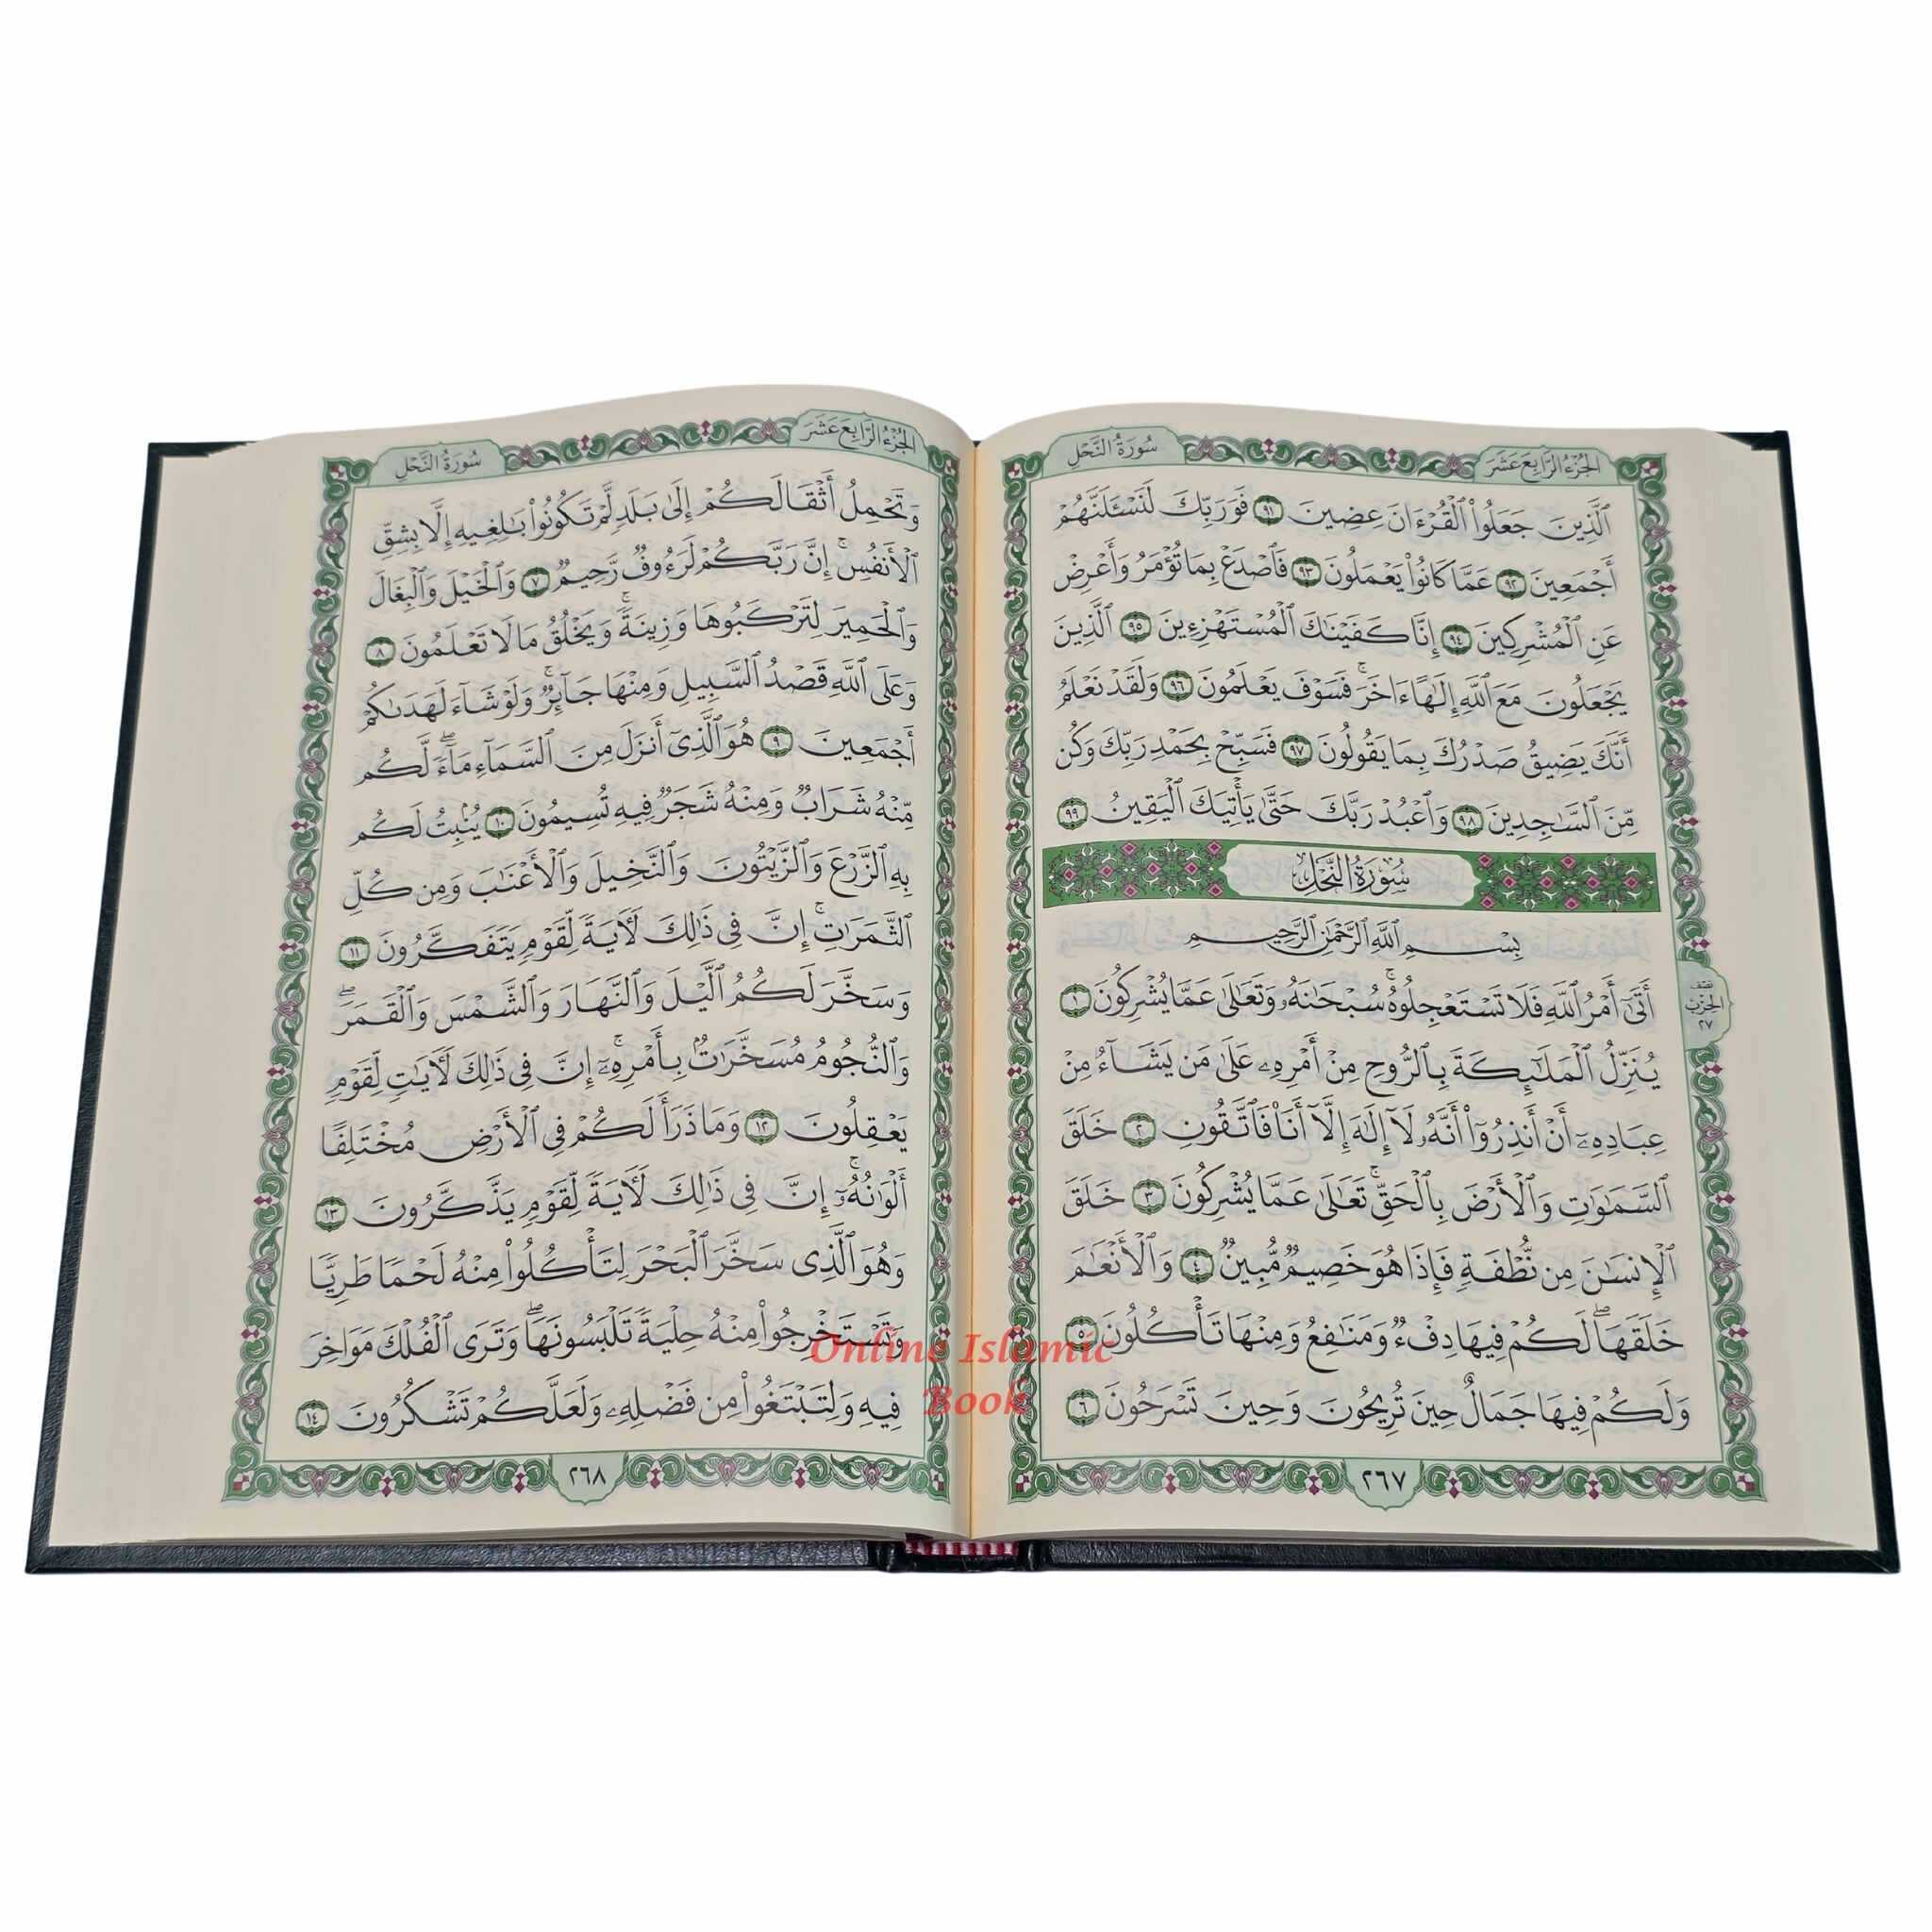 الجزء الرابع عشر
سورة النحل
ٱلَّذِينَ جَعَلُوا۟ ٱلْقُرْءَانَ عِضِينَ ٩١ فَوَرَبِّكَ لَنَسْـَٔلَنَّهُمْ
أَجْمَعِينَ ٩٢ عَمَّا كَانُوا۟ يَعْمَلُونَ ٩٣ فَٱصْدَعْ بِمَا تُؤْمَرُ وَأَعْرِضْ
عَنِ ٱلْمُشْرِكِينَ ٩٤ إِنَّا كَفَيْنَـٰكَ ٱلْمُسْتَهْزِءِينَ ٩٥ ٱلَّذِينَ
يَجْعَلُونَ مَعَ ٱللَّهِ إِلَـٰهًا ءَاخَرَ ۚ فَسَوْفَ يَعْلَمُونَ ٩٦ وَلَقَدْ نَعْلَمُ
أَنَّكَ يَضِيقُ صَدْرُكَ بِمَا يَقُولُونَ ٩٧ فَسَبِّحْ بِحَمْدِ رَبِّكَ وَكُن
مِّنَ ٱلسَّـٰجِدِينَ ٩٨ وَٱعْبُدْ رَبَّكَ حَتَّىٰ يَأْتِيَكَ ٱلْيَقِينُ ٩٩
سُورَةُ النَّحْلِ
بِسْمِ ٱللَّهِ ٱلرَّحْمَـٰنِ ٱلرَّحِيمِ
أَتَىٰٓ أَمْرُ ٱللَّهِ فَلَا تَسْتَعْجِلُوهُ ۚ سُبْحَـٰنَهُۥ وَتَعَـٰلَىٰ عَمَّا يُشْرِكُونَ ١
يُنَزِّلُ ٱلْمَلَـٰٓئِكَةَ بِٱلرُّوحِ مِنْ أَمْرِهِۦ عَلَىٰ مَن يَشَآءُ مِنْ
عِبَادِهِۦٓ أَنْ أَنذِرُوٓا۟ أَنَّهُۥ لَآ إِلَـٰهَ إِلَّآ أَنَا۠ فَٱتَّقُونِ ٢ خَلَقَ
ٱلسَّمَـٰوَٰتِ وَٱلْأَرْضَ بِٱلْحَقِّ ۚ تَعَـٰلَىٰ عَمَّا يُشْرِكُونَ ٣ خَلَقَ
ٱلْإِنسَـٰنَ مِن نُّطْفَةٍ فَإِذَا هُوَ خَصِيمٌ مُّبِينٌ ٤ وَٱلْأَنْعَـٰمَ
خَلَقَهَا ۗ لَكُمْ فِيهَا دِفْءٌ وَمَنَـٰفِعُ وَمِنْهَا تَأْكُلُونَ ٥
وَلَكُمْ فِيهَا جَمَالٌ حِينَ تُرِيحُونَ وَحِينَ تَسْرَحُونَ ٦
نصف
الحزب
٢٧
٢٦٧
الجزء الرابع عشر
سورة النحل
وَتَحْمِلُ أَثْقَالَكُمْ إِلَىٰ بَلَدٍ لَّمْ تَكُونُوا۟ بَـٰلِغِيهِ إِلَّا بِشِقِّ
ٱلْأَنفُسِ ۚ إِنَّ رَبَّكُمْ لَرَءُوفٌ رَّحِيمٌ ٧ وَٱلْخَيْلَ وَٱلْبِغَالَ
وَٱلْحَمِيرَ لِتَرْكَبُوهَا وَزِينَةً ۚ وَيَخْلُقُ مَا لَا تَعْلَمُونَ ٨
وَعَلَى ٱللَّهِ قَصْدُ ٱلسَّبِيلِ وَمِنْهَا جَآئِرٌ ۚ وَلَوْ شَآءَ لَهَدَىٰكُمْ
أَجْمَعِينَ ٩ هُوَ ٱلَّذِىٓ أَنزَلَ مِنَ ٱلسَّمَآءِ مَآءً ۖ لَّكُم
مِّنْهُ شَرَابٌ وَمِنْهُ شَجَرٌ فِيهِ تُسِيمُونَ ١٠ يُنۢبِتُ لَكُم
بِهِ ٱلزَّرْعَ وَٱلزَّيْتُونَ وَٱلنَّخِيلَ وَٱلْأَعْنَـٰبَ وَمِن كُلِّ
ٱلثَّمَرَٰتِ ۗ إِنَّ فِى ذَٰلِكَ لَـَٔايَةً لِّقَوْمٍ يَتَفَكَّرُونَ ١١
وَسَخَّرَ لَكُمُ ٱلَّيْلَ وَٱلنَّهَارَ وَٱلشَّمْسَ وَٱلْقَمَرَ ۖ
وَٱلنُّجُومُ مُسَخَّرَٰتٌۢ بِأَمْرِهِۦٓ ۗ إِنَّ فِى ذَٰلِكَ لَـَٔايَـٰتٍ لِّقَوْمٍ
يَعْقِلُونَ ١٢ وَمَا ذَرَأَ لَكُمْ فِى ٱلْأَرْضِ مُخْتَلِفًا
أَلْوَٰنُهُۥٓ ۗ إِنَّ فِى ذَٰلِكَ لَـَٔايَةً لِّقَوْمٍ يَذَّكَّرُونَ ١٣
وَهُوَ ٱلَّذِى سَخَّرَ ٱلْبَحْرَ لِتَأْكُلُوا۟ مِنْهُ لَحْمًا طَرِيًّا
وَتَسْتَخْرِجُوا۟ مِنْهُ حِلْيَةً تَلْبَسُونَهَا ۖ وَتَرَى ٱلْفُلْكَ مَوَاخِرَ
فِيهِ وَلِتَبْتَغُوا۟ مِن فَضْلِهِۦ وَلَعَلَّكُمْ تَشْكُرُونَ ١٤
٢٦٨
Online Islamic
Book